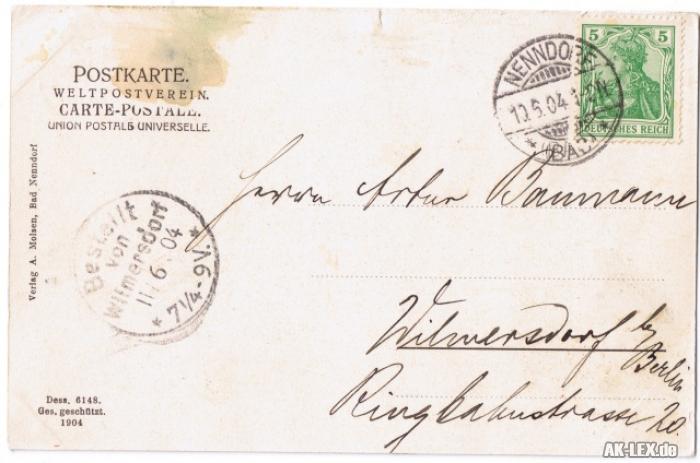 POSTKARTE.
WELTPOSTVEREIN.
CARTE-POSTALE.
UNION POSTALE UNIVERSELLE.
5 5
DEUTSCHES REICH
NENNDORF
(BAD)
Herrn Artur Baumann
Wilmersdorf by
Berlin
Ringbahnstrasse 20.
Bestellt
von
Wilmersdorf
11/6 04
7¼-9V.
Verlag A. Molsen, Bad Nenndorf
Dess. 6148.
Ges. geschützt.
1904
AK-LEX.de